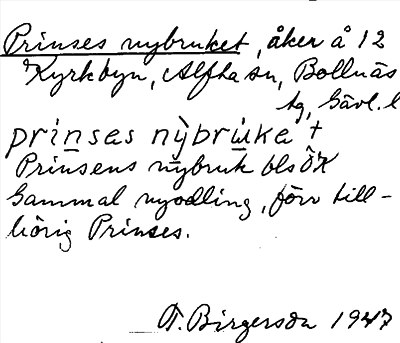 Prinses nybruket, åker å 12
Kyrkbyn, Alfta sn, Bollnäs
tg, Gävl. l
prinsas nỳbruka +
Prinsens nybruk bls ÖK
Gammal nyodling, förr till-
hörig Prinses.
T. Birgersson 1947